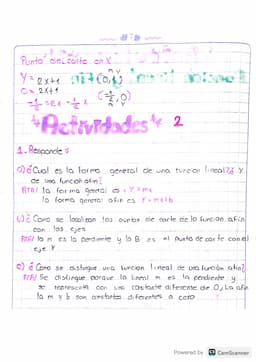 Punto del corte en X
Y = 2x+1 (0,1)
0 = 2x+1 (-1/2, 0)
Actividades 2
1. Responde:
a) ¿Cual es la forma general de una funcion lineal? ¿ Y
de una funcion afin?
Rta/ la forma general es : Y=mx
la forma general afin es Y=mx+b
b) ¿ Como se localizan los puntos de corte de la funcion afin
con los ejes
Rta/ la m es la pendiente y la B es el punto de corte con el
eje Y
c) ¿ Como se distingue una funcion lineal de una función afin?
Rta/ Se distingue porque la lineal m es la pendiente y
se representa con una constante diferente de 0, la afin
la m y b son constantes diferentes a cero
Powered by CamScanner